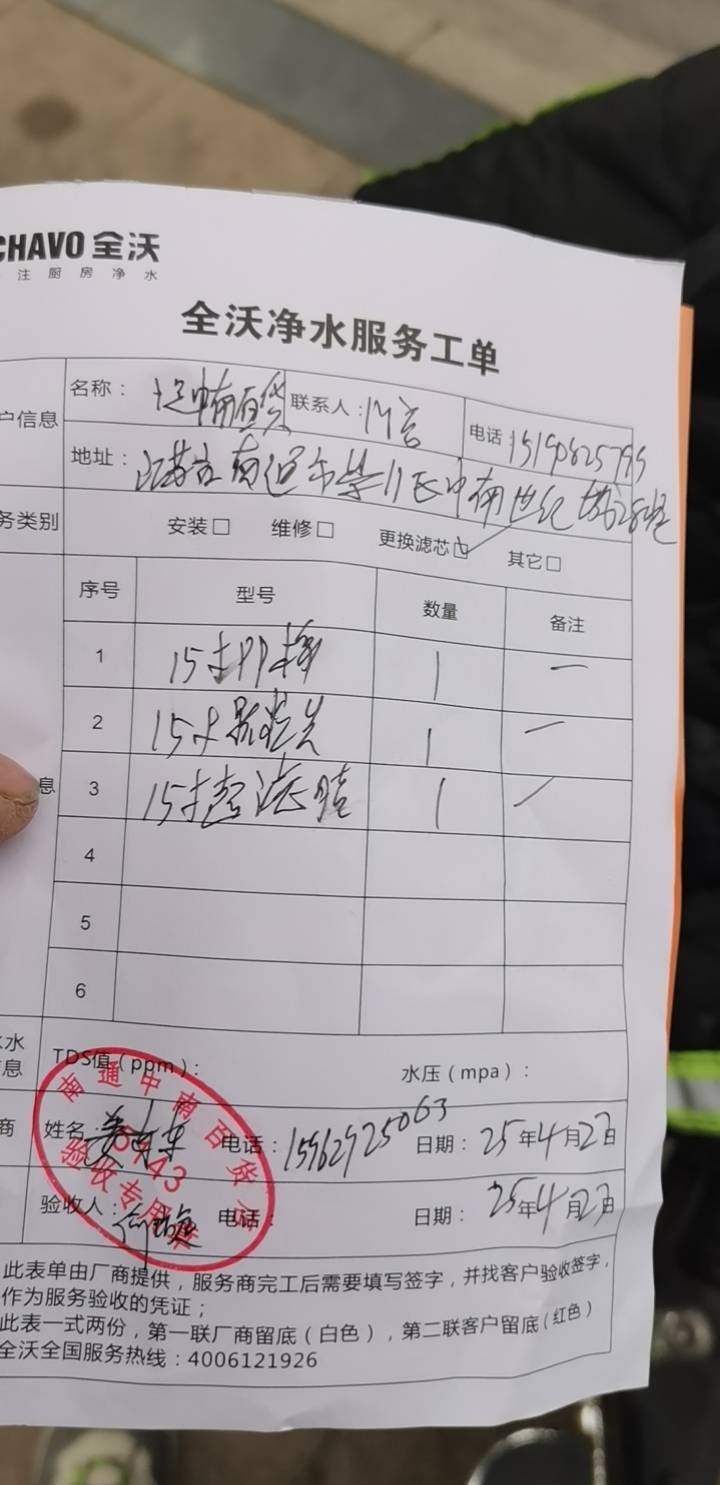 CHAVO 全沃
注厨房净水
全沃净水服务工单
户信息
名称： 中南百货 联系人： 电话：
地址： 江苏省南通市崇川区中南世纪城
务类别 安装□ 维修□ 更换滤芯☑ 其它□
序号 型号 数量 备注
1 15寸PP棉 1 一
2 15寸颗粒炭 1 一
3 15寸 1 一
息
4
5
6
水
信息
TDS值（ppm）： 水压（mpa）：
商 姓名： 电话：15962925063 日期：25年4月27日
验收人： 电话： 日期：25年4月27日
南通中南百货
验收专用章
此表单由厂商提供，服务商完工后需要填写签字，并找客户验收签字，
作为服务验收的凭证；
此表一式两份，第一联厂商留底（白色），第二联客户留底（红色）
全沃全国服务热线：4006121926